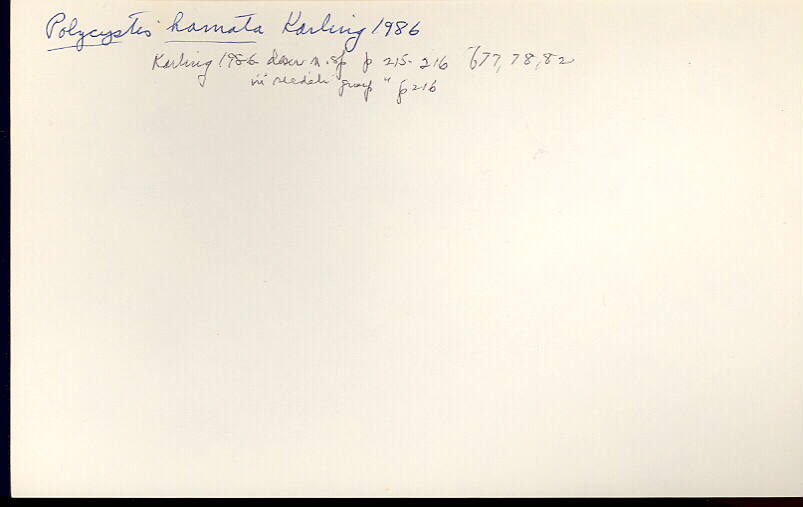 Polycystis hamata Karling 1986
Karling 1986 descr n. sp p 215-216 f 77, 78, 82
in group" p 216